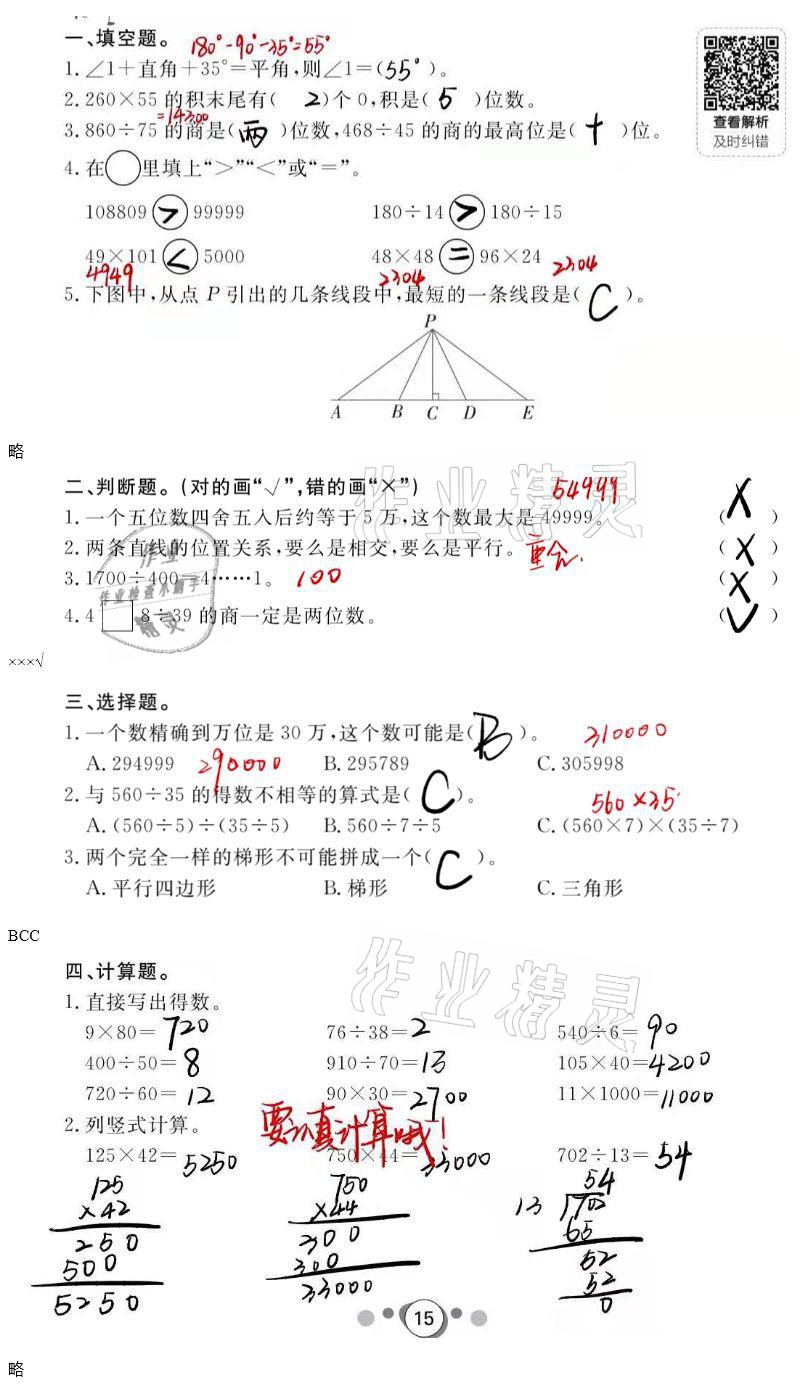 一、填空题。 180°-90°-35°=55°
查看解析
及时纠错
1.∠1+直角+35°=平角,则∠1=(55°)。
2.260×55 的积末尾有( 2 )个 0,积是( 5 )位数。
=14300
3.860÷75 的商是( 两 )位数,468÷45 的商的最高位是( 十 )位。
4.在○里填上“>”“<”或“=”。
108809 > 99999 180÷14 > 180÷15
49×101 < 5000 48×48 = 96×24
4949 2304 2304
5.下图中,从点 P 引出的几条线段中,最短的一条线段是( C )。
P
A B C D E
略
二、判断题。(对的画“√”,错的画“×”) 54999
1.一个五位数四舍五入后约等于 5 万,这个数最大是 49999。 ( X )
2.两条直线的位置关系,要么是相交,要么是平行。 重合. ( X )
3.1700÷400=4……1。 100 ( X )
4.4□8÷39 的商一定是两位数。 ( √ )
作业精灵
作业
作业检查小助手
精灵
×××√
三、选择题。
1.一个数精确到万位是 30 万,这个数可能是( B )。 310000
A.294999 290000 B.295789 C.305998
2.与 560÷35 的得数不相等的算式是( C )。 560×35
A.(560÷5)÷(35÷5) B.560÷7÷5 C.(560×7)×(35÷7)
3.两个完全一样的梯形不可能拼成一个( C )。
A.平行四边形 B.梯形 C.三角形
BCC
作业精灵
四、计算题。
1.直接写出得数。
9×80=720 76÷38=2 540÷6=90
400÷50=8 910÷70=13 105×40=4200
720÷60=12 90×30=2700 11×1000=11000
2.列竖式计算。 要认真计算哦!
125×42=5250 750×44=33000 702÷13=54
125 750 54
×42 ×44 13 702
250 300 65
500 300 52
5250 33000 52
0
15
略